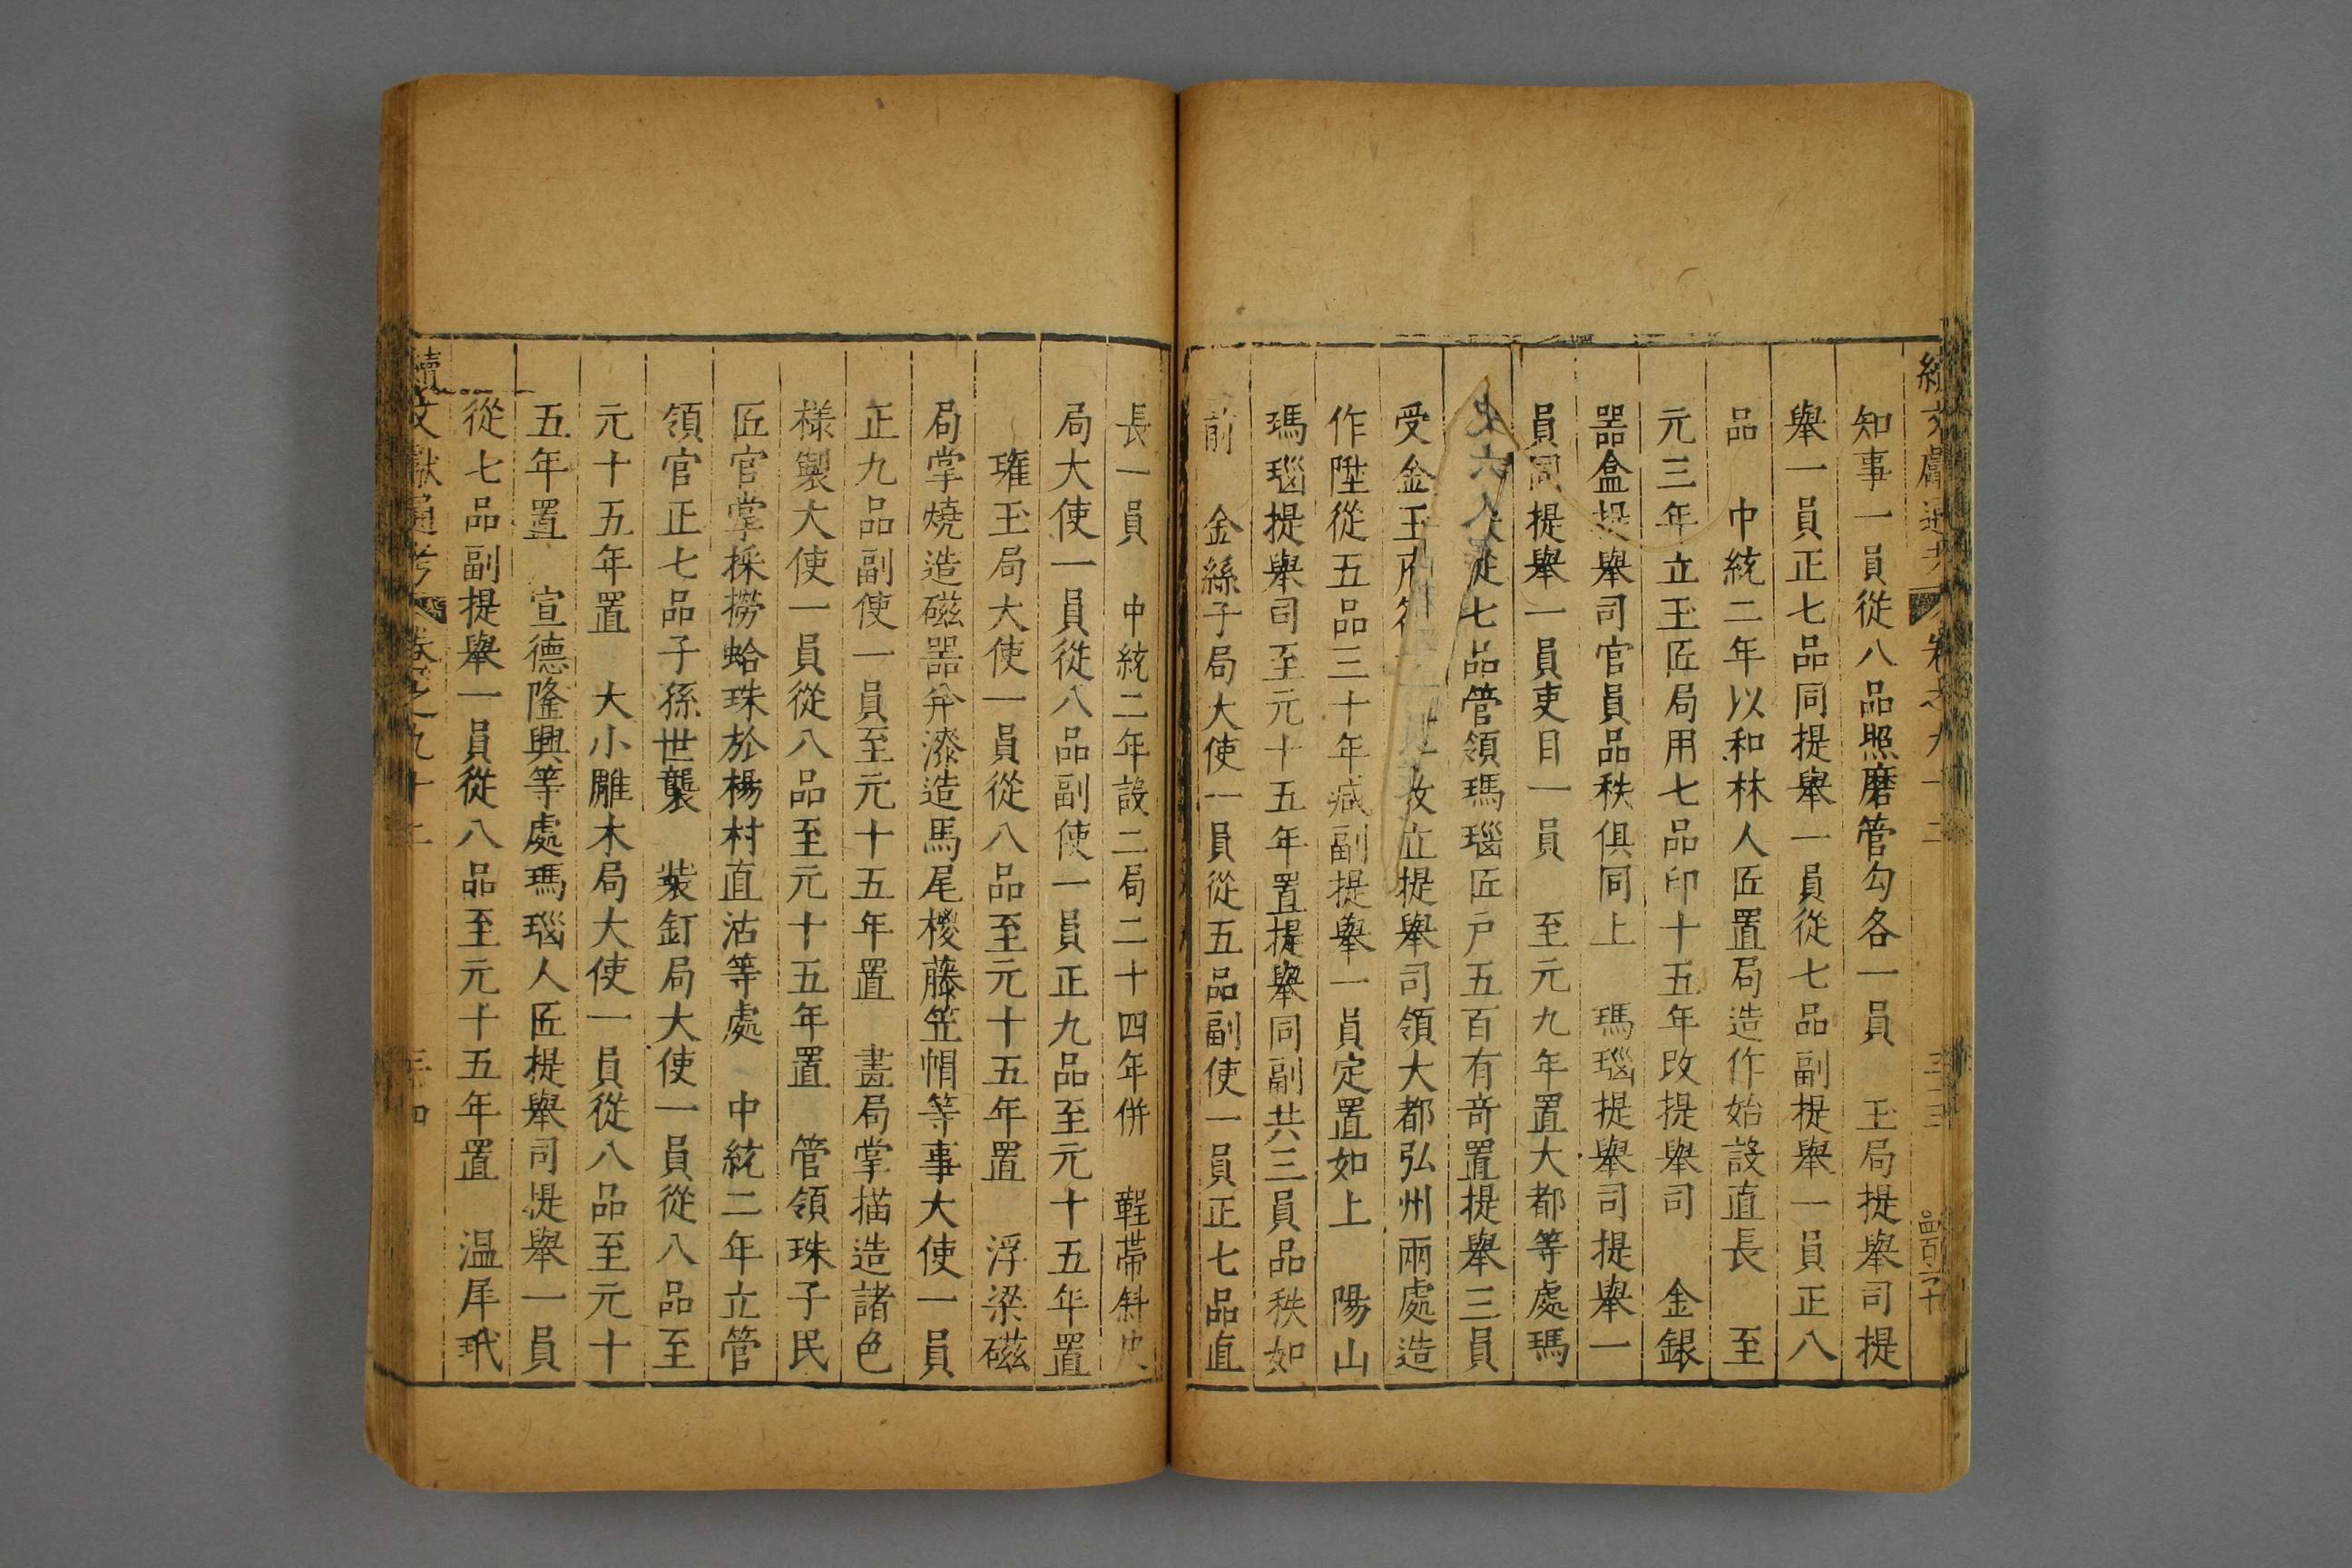 續文獻通考 卷之九十二 三十三
知事一員從八品照磨管勾各一員 玉局提舉司提
舉一員正七品同提舉一員從七品副提舉一員正八
品 中統二年以和林人匠置局造作始設直長 至
元三年立玉匠局用七品印十五年改提舉司 金銀
器盒提舉司官員品秩俱同上 瑪瑙提舉司提舉一
員同提舉一員吏目一員 至元九年置大都等處瑪
從七品管領瑪瑙匠戶五百有奇置提舉三員
受金玉府 改立提舉司領大都弘州兩處造
作陞從五品三十年减副提舉一員定置如上 陽山
瑪瑙提舉司至元十五年置提舉同副共三員品秩如
前 金絲子局大使一員從五品副使一員正七品直
長一員 中統二年設二局二十四年併 鞓帶斜皮
局大使一員從八品副使一員正九品至元十五年置
瓘玉局大使一員從八品至元十五年置 浮梁磁
局掌燒造磁器并漆造馬尾㯶藤笠帽等事大使一員
正九品副使一員至元十五年置 畫局掌描造諸色
樣製大使一員從八品至元十五年置 管領珠子民
匠官掌採撈蛤珠於楊村直沽等處 中統二年立管
領官正七品子孫世襲 裝釘局大使一員從八品至
元十五年置 大小雕木局大使一員從八品至元十
五年置 宣德隆興等處瑪瑙人匠提舉司提舉一員
從七品副提舉一員從八品至元十五年置 温犀玳
續文獻通考 卷之九十二 三十四